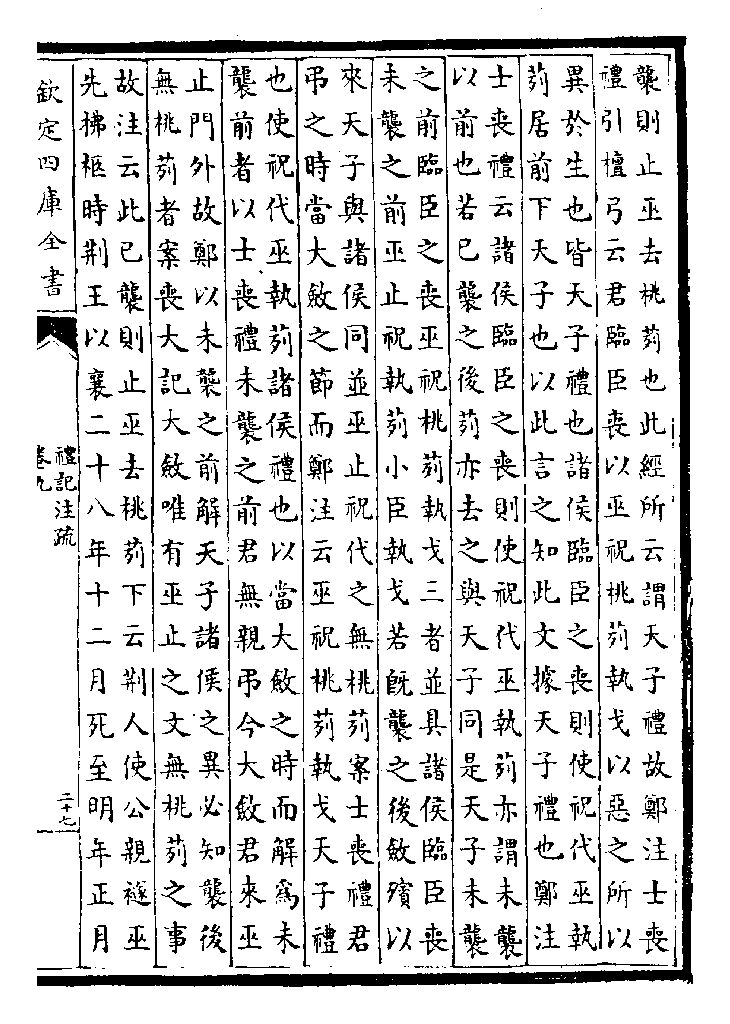 襲則止巫去桃茢也此經所云謂天子禮故鄭注士喪
禮引檀弓云君臨臣喪以巫祝桃茢執戈以惡之所以
異於生也皆天子禮也諸侯臨臣之喪則使祝代巫執
茢居前下天子也以此言之知此文據天子禮也鄭注
士喪禮云諸侯臨臣之喪則使祝代巫執茢亦謂未襲
以前也若已襲之後茢亦去之與天子同是天子未襲
之前臨臣之喪巫祝桃茢執戈三者並具諸侯臨臣喪
未襲之前巫止祝執茢小臣執戈若既襲之後斂殯以
來天子與諸侯同並巫止祝代之無桃茢案士喪禮君
弔之時當大斂之節而鄭注云巫祝桃茢執戈天子禮
也使祝代巫執茢諸侯禮也以當大斂之時而解為未
襲前者以士喪禮未襲之前君無親弔今大斂君來巫
止門外故鄭以未襲之前解天子諸侯之異必知襲後
無桃茢者案喪大記大斂唯有巫止之文無桃茢之事
故注云此已襲則止巫去桃茢下云荆人使公親襚巫
先拂柩時荆王以襄二十八年十二月死至明年正月
欽定四庫全書
禮記注疏
卷九
二十七